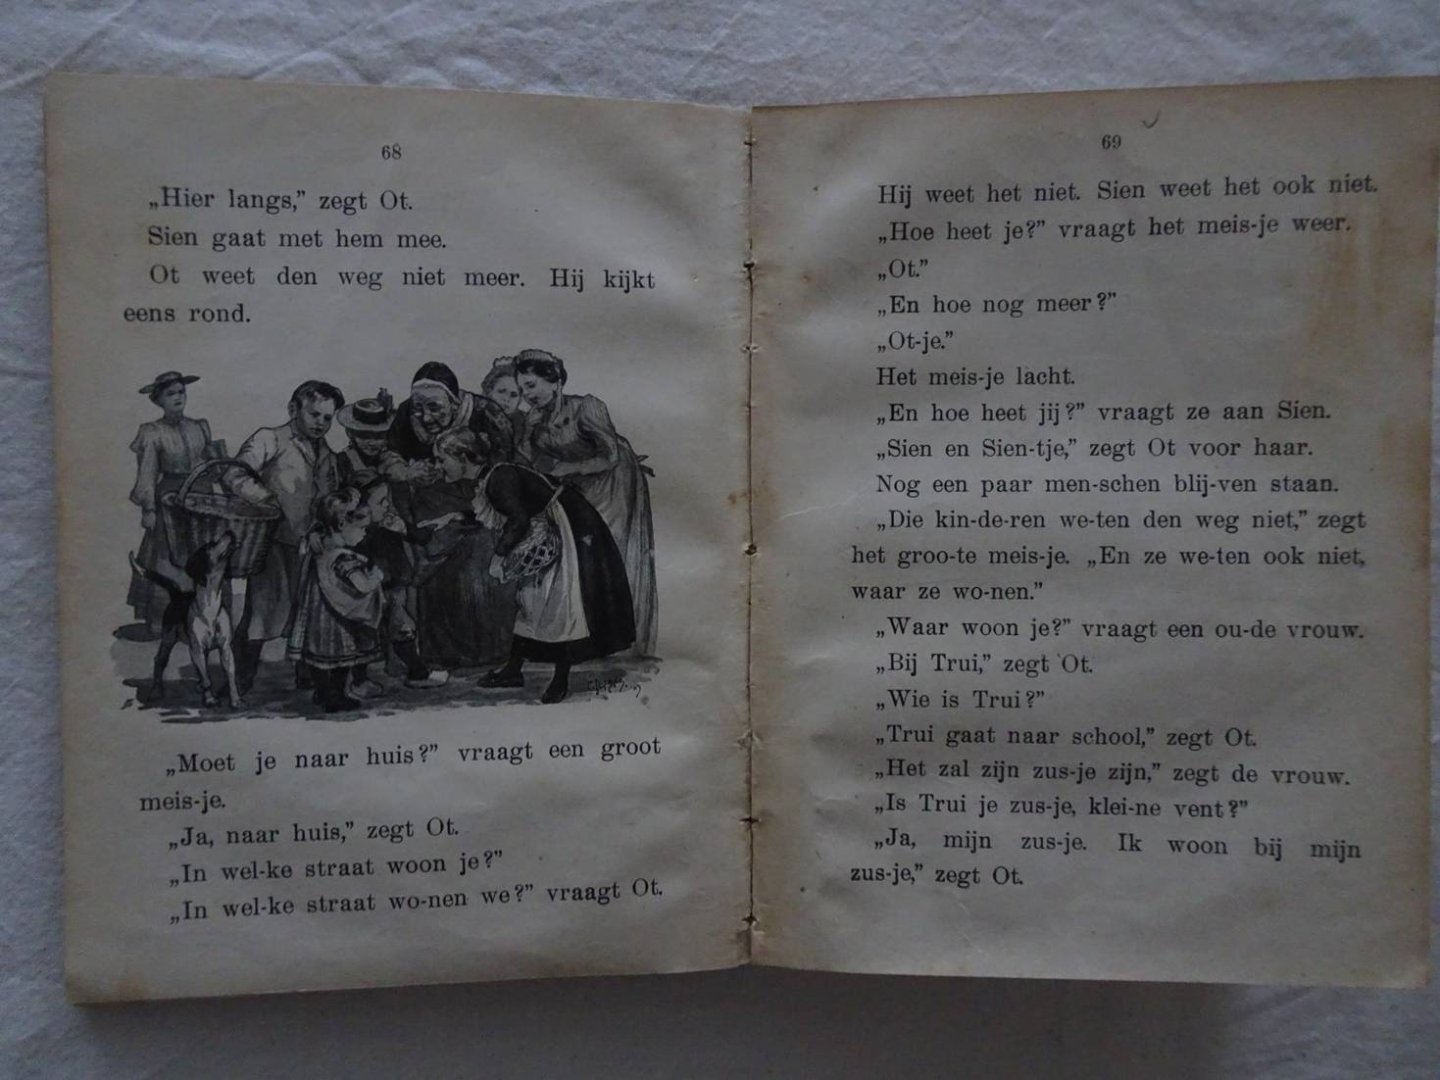 68
„Hier langs,” zegt Ot.
Sien gaat met hem mee.
Ot weet den weg niet meer. Hij kijkt
eens rond.
„Moet je naar huis?” vraagt een groot
meis-je.
„Ja, naar huis,” zegt Ot.
„In wel-ke straat woon je?”
„In wel-ke straat wo-nen we?” vraagt Ot.
69
Hij weet het niet. Sien weet het ook niet.
„Hoe heet je?” vraagt het meis-je weer.
„Ot.”
„En hoe nog meer?”
„Ot-je.”
Het meis-je lacht.
„En hoe heet jij?” vraagt ze aan Sien.
„Sien en Sien-tje,” zegt Ot voor haar.
Nog een paar men-schen blij-ven staan.
„Die kin-de-ren we-ten den weg niet,” zegt
het groo-te meis-je. „En ze we-ten ook niet,
waar ze wo-nen.”
„Waar woon je?” vraagt een ou-de vrouw.
„Bij Trui,” zegt Ot.
„Wie is Trui?”
„Trui gaat naar school,” zegt Ot.
„Het zal zijn zus-je zijn,” zegt de vrouw.
„Is Trui je zus-je, klei-ne vent?”
„Ja, mijn zus-je. Ik woon bij mijn
zus-je,” zegt Ot.